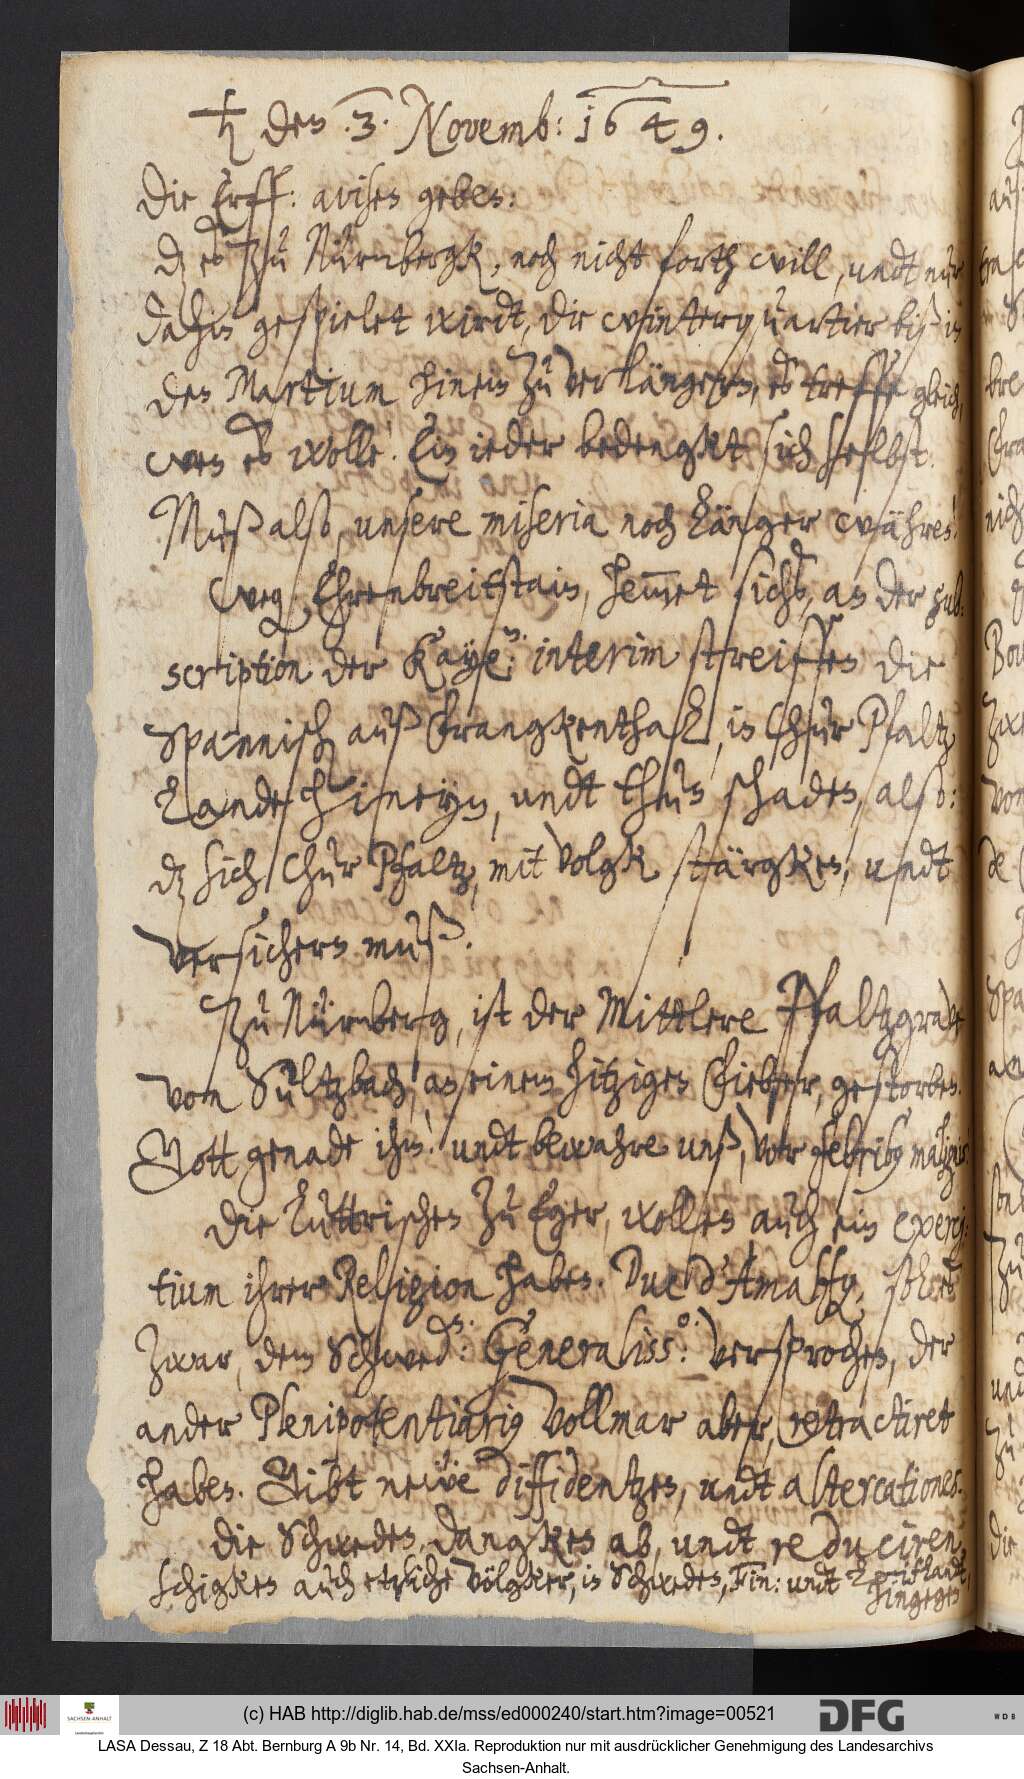 ♄ den .3. Novemb: 1649.
Die Erff: avisen geben:
dz es zu Nürnbergk, noch nicht forth will, undt nur
dahin gespielet wirdt, die winterquartier biß in
den Martium hinein zu verlängern, es treffe gleich,
wen es wolle. Ein ieder bedengkt sich selbst.
Muß also, unsere miseria noch länger währen!
Weg. Ehrenbreitstain, hemmet sichs, an der sub¬
scription der Kaye:n: interim streiffen die
Spannisch auß Frangkenthal, in Chur Pfaltz
Lande hineyn, undt thun schaden, also:
dz sich Chur Pfaltz, mit volgk stärgken, undt
versichern muß.
Zu Nürnberg, ist der Mittlere Pfaltzgrave
von Sultzbach, an einem hitzigen Fieber, gestorben.
Gott genade ihm! undt bewahre unß, vor febribus malignis!
Die Luttrischen zu Eger, wollen auch ein exerci¬
tium ihrer Religion haben. Duc d'Amalfy, solches
zwar, dem Schwed:n: Generaliss:o: versprochen, der
ander Plenipotentiarius Vollmar aber, retractiret
haben. Gibt neẅe diffidentzen, undt altercationes.
Die Schweden, dangken ab, undt reduciren,
schigken auch etzliche völgker, in Schweden, Fin: undt Liflandt,
hingegen
(c) HAB http://diglib.hab.de/mss/ed000240/start.htm?image=00521
SACHSEN-ANHALT
DFG
WDB
LASA Dessau, Z 18 Abt. Bernburg A 9b Nr. 14, Bd. XXIa. Reproduktion nur mit ausdrücklicher Genehmigung des Landesarchivs
Sachsen-Anhalt.